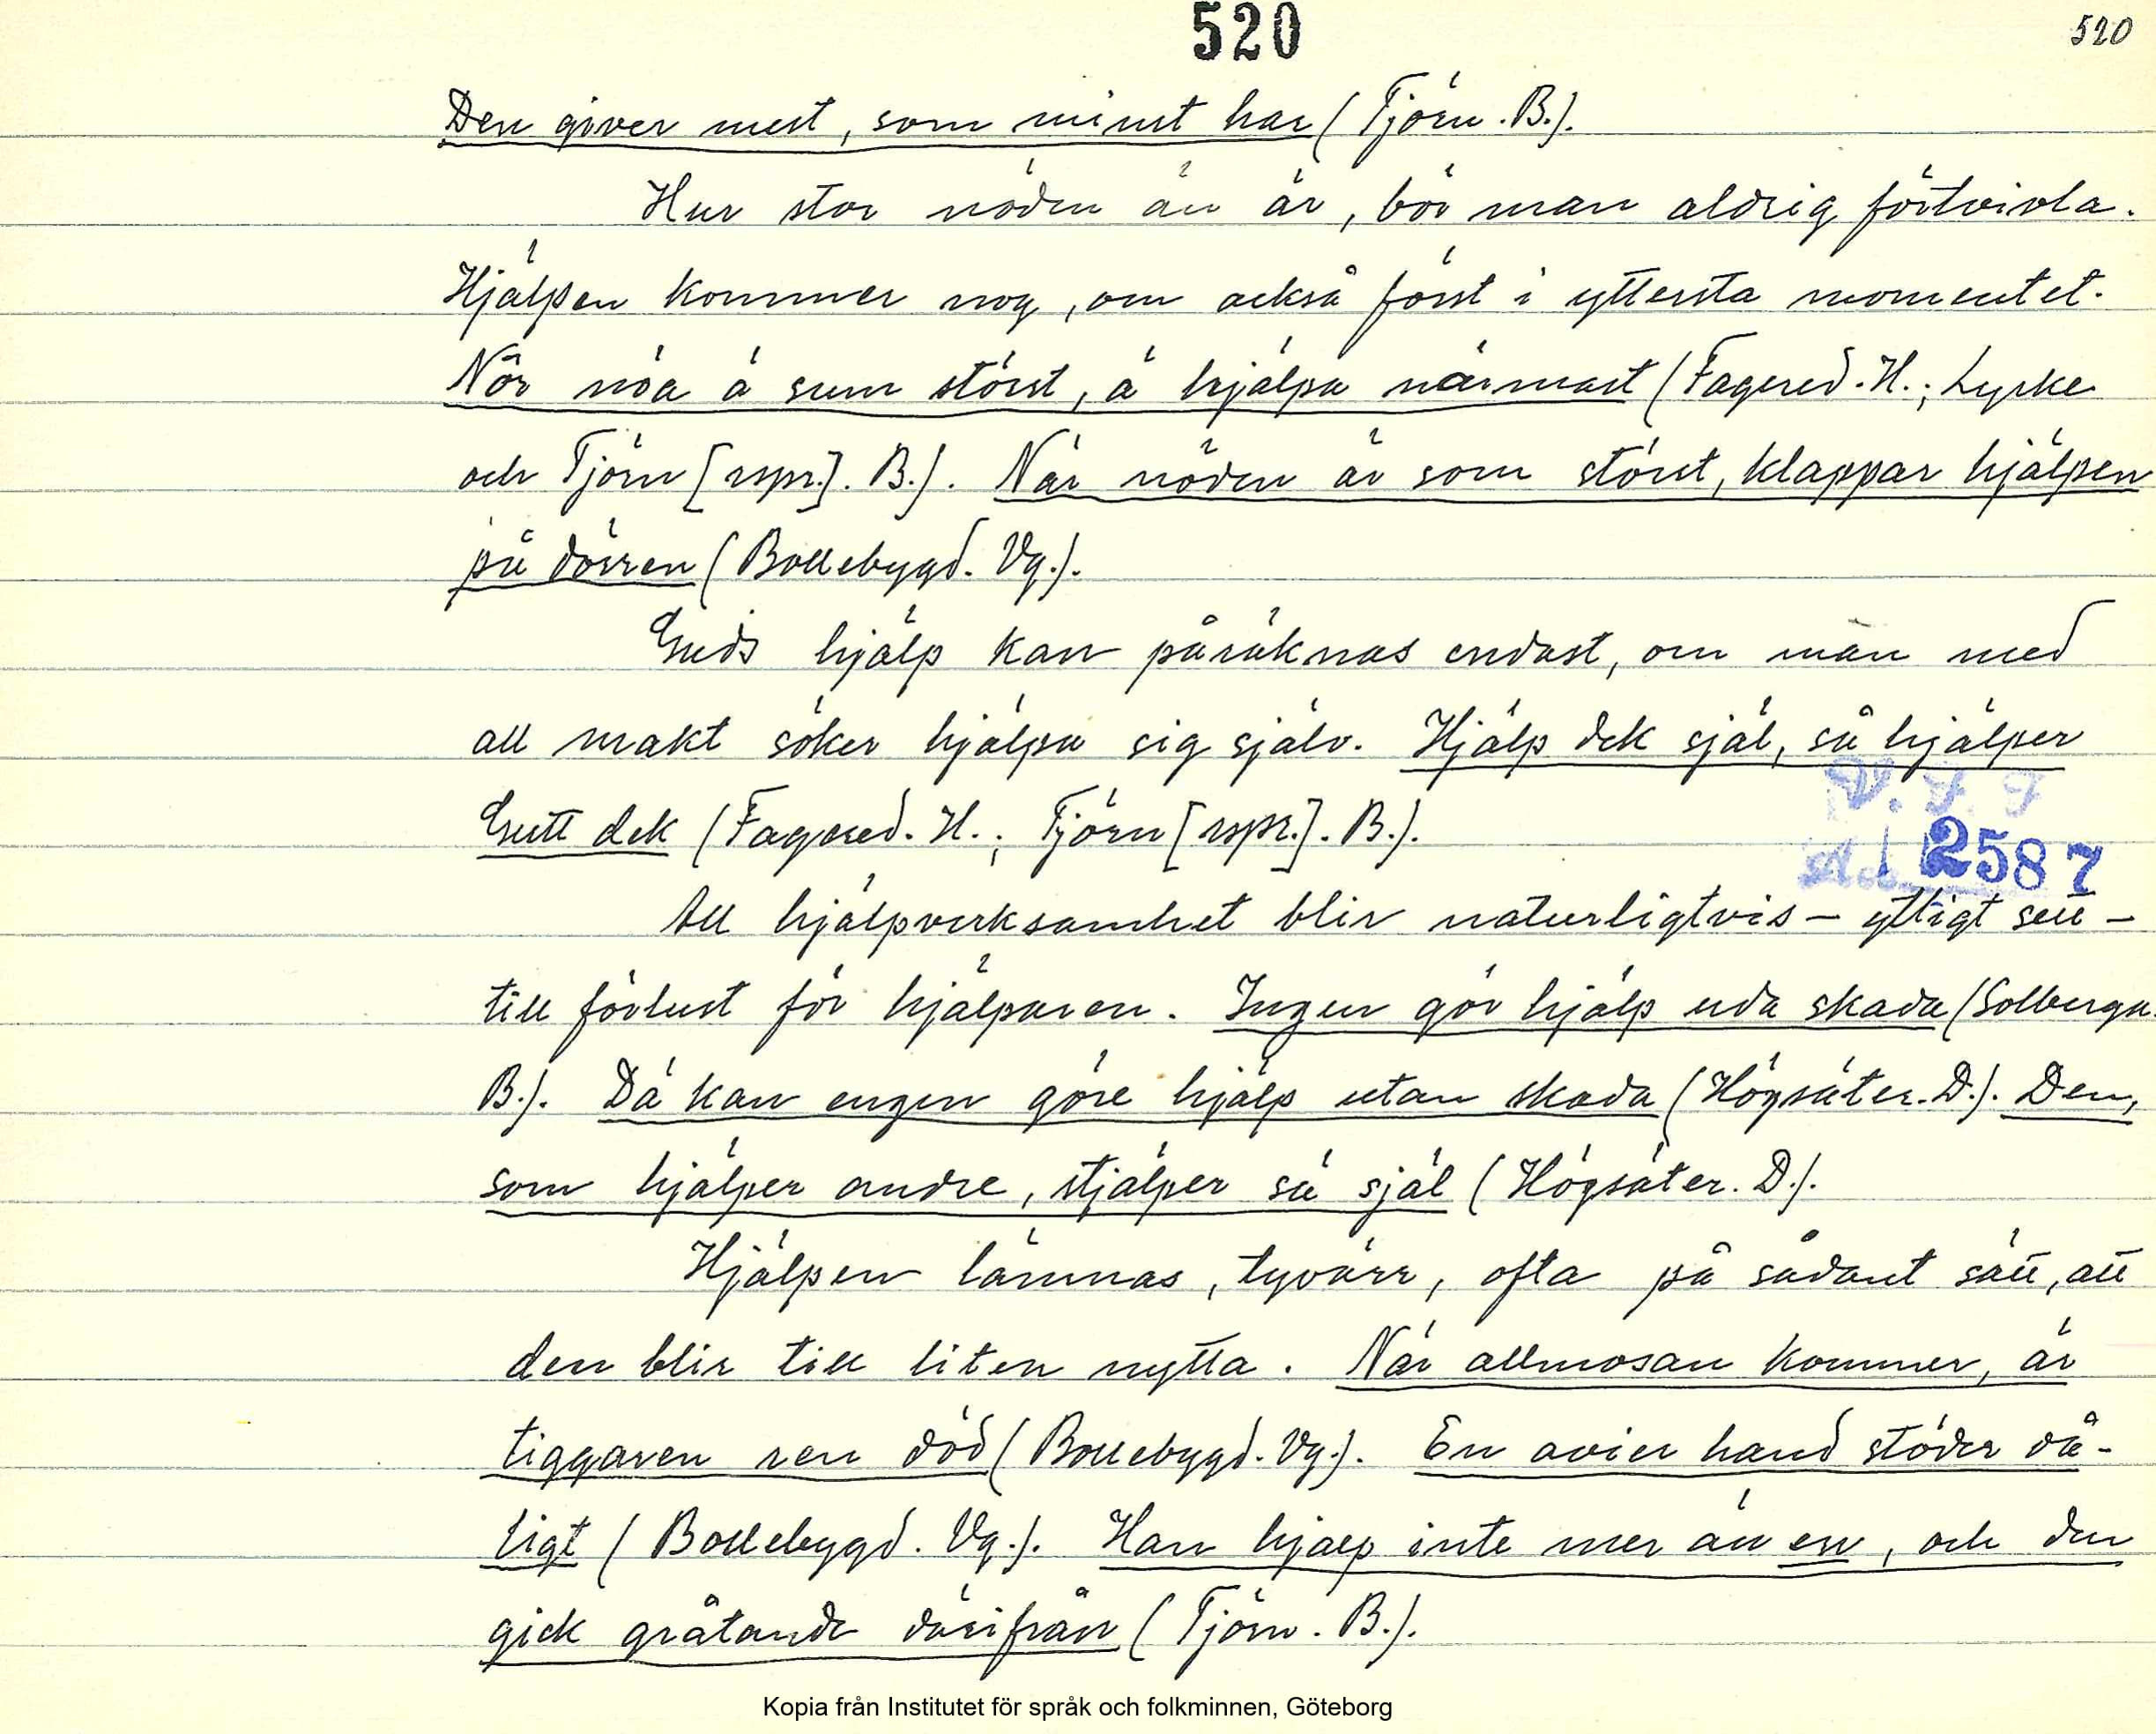 520
520
Den giver mest, som minst har (Tjörn. B.).
Hur stor nöden än är, bör man aldrig förtvivla.
Hjälpen kommer nog, om också först i yttersta momentet.
Når nöa ä sum störst, ä hjälpa närmast (Fagered. H.; Lycke
och Tjörn [rspr.]. B.). När nöden är som störst, klappar hjälpen
på dörren (Bollebygd. Vg.).
Guds hjälp kan påräknas endast, om man med
all makt söker hjälpa sig själv. Hjälp dek själ, så hjälper
Gutt dek (Fagered. H.; Tjörn [rspr.]. B.).
V. F. F
Acc. 2587
All hjälpverksamhet blir naturligtvis – ytligt sett –
till förlust för hjälparen. Ingen gör hjälp uda skada (Solberga.
B.). Dä kan engen göre hjälp utan skada (Högsäter. D.). Den,
som hjälper andre, stjälper sä själ (Högsäter. D.).
Hjälpen lämnas, tyvärr, ofta på sådant sätt, att
den blir till liten nytta. När allmosan kommer, är
tiggaren ren död (Bollebygd. Vg.). En ovier hand stöder då-
ligt (Bollebygd. Vg.). Han hjalp inte mer än en, och den
gick gråtande därifrån (Tjörn. B.).
Kopia från Institutet för språk och folkminnen, Göteborg